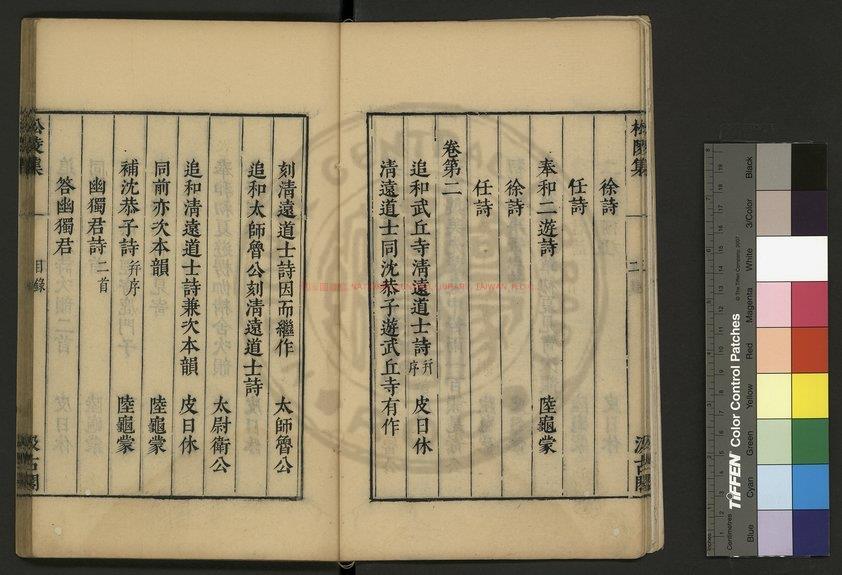 徐詩
任詩
奉和二遊詩 陸龜蒙
徐詩
任詩
卷第二
追和武丘寺清遠道士詩 并序 皮日休
清遠道士同沈恭子遊武丘寺有作
刻清遠道士詩因而繼作 太師魯公
追和太師魯公刻清遠道士詩
太尉衛公
追和清遠道士詩兼次本韻 皮日休
同前亦次本韻 陸龜蒙
補沈恭子詩 并序 陸龜蒙
幽獨君詩 二首
答幽獨君
松陵集 目錄 汲古閣
松陵集 二 汲古閣
NATIONAL CENTRAL LIBRARY, TAIWAN, R.O.C.
TIFFEN Color Control Patches
© The Tiffen Company, 2007
Centimetres
Inches
Blue
Cyan
Green
Yellow
Red
Magenta
White
3/Color
Black